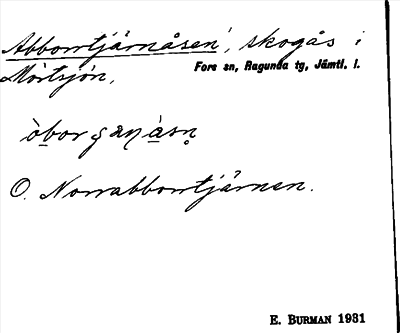 Abborrtjärnåsen, skogås i
Mörtsjön, Fors sn, Ragunda tg, Jämtl. l.
O. Norrabborrtjärnen.
E. BURMAN 1931